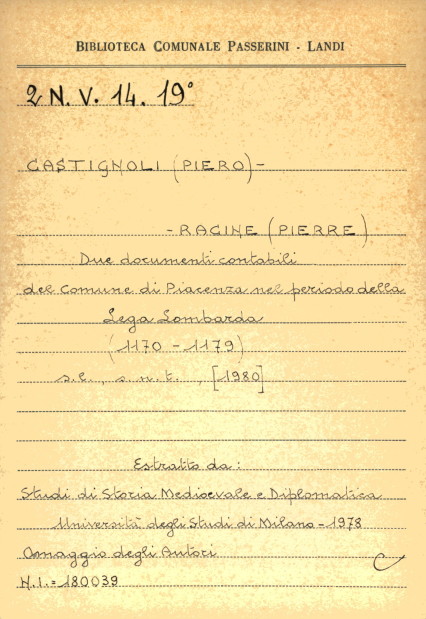 BIBLIOTECA COMUNALE PASSERINI - LANDI
2 N. V. 14. 19°
CASTIGNOLI (PIERO) -
- RACINE (PIERRE)
Due documenti contabili
del Comune di Piacenza nel periodo della
Lega Lombarda
(1170 - 1179)
s.l., s.n.t., [1980]
Estratto da:
Studi di Storia Medioevale e Diplomatica
Università degli Studi di Milano - 1978
Omaggio degli Autori
N.I. = 180039